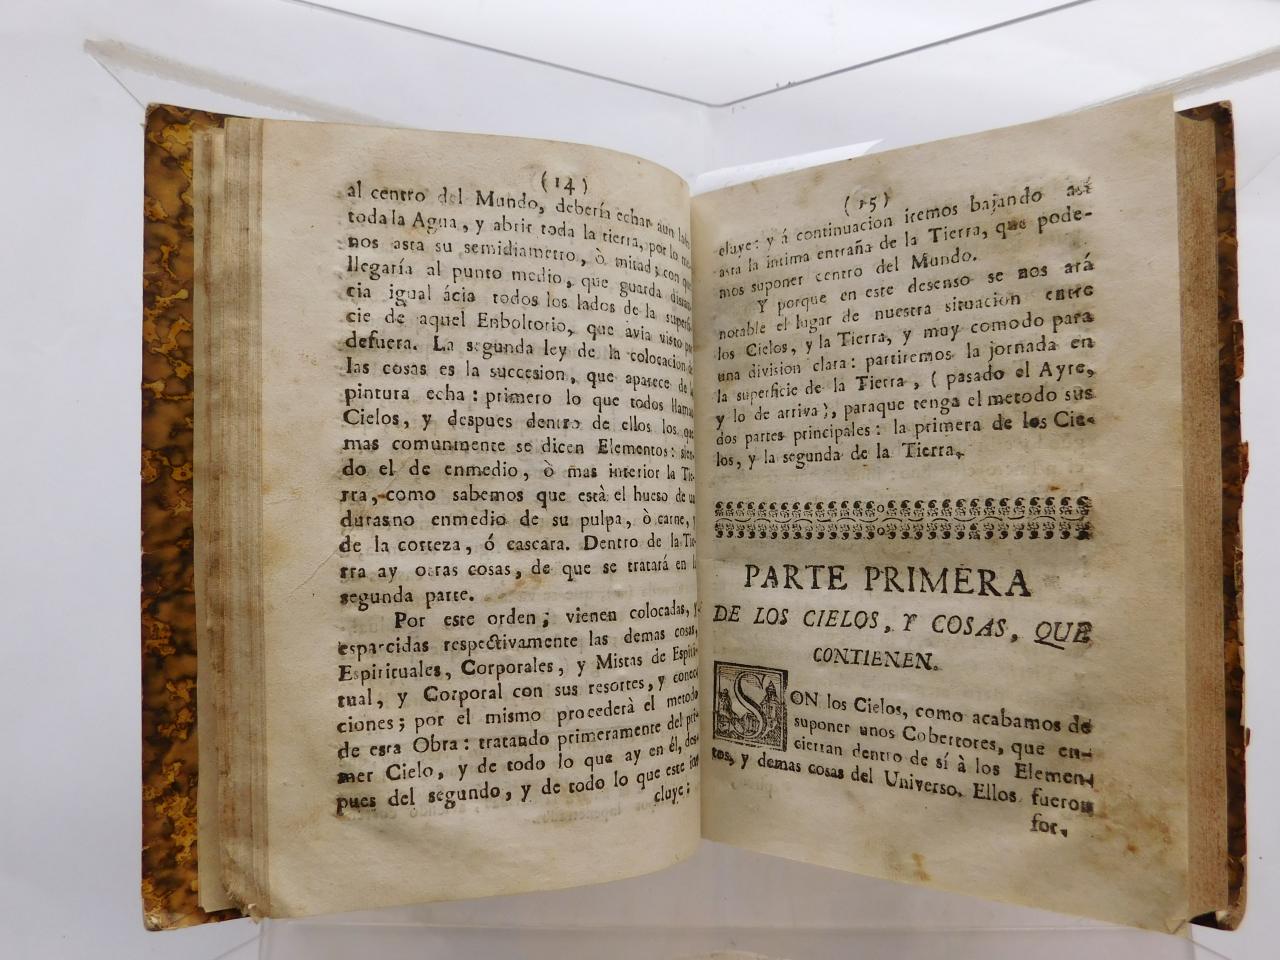 (14)
al centro del Mundo, debería echar aun lado
toda la Agua, y abrir toda la tierra, por lo me-
nos asta su semidiametro, ò mitad; con que
llegaría al punto medio, que guarda distan-
cia igual ácia todos los lados de la superfi-
cie de aquel Enboltorio, que avia visto por
defuera. La segunda ley de la colocacion de
las cosas es la succesion, que aparece de la
pintura echa: primero lo que todos llaman
Cielos, y despues dentro de ellos los que
mas comunmente se dicen Elementos: sien-
do el de enmedio, ò mas interior la Tie-
rra, como sabemos que està el hueso de un
durasno enmedio de su pulpa, ò carne, y
de la corteza, ó cascara. Dentro de la Tie-
rra ay otras cosas, de que se tratará en la
segunda parte.
Por este orden; vienen colocadas, y
esparcidas respectivamente las demas cosas,
Espirituales, Corporales, y Mistas de Espiri-
tual, y Corporal con sus resortes, y conec-
ciones; por el mismo procederà el metodo
de esta Obra: tratando primeramente del pri-
mer Cielo, y de todo lo que ay en él, des-
pues del segundo, y de todo lo que este in-
cluye;
(15)
cluye: y á continuacion iremos bajando asi
asta la intima entraña de la Tierra, que pode-
mos suponer centro del Mundo.
Y porque en este desenso se nos ará
notable el lugar de nuestra situacion entre
los Cielos, y la Tierra, y muy comodo para
una division clara: partiremos la jornada en
la superficie de la Tierra, (pasado el Ayre,
y lo de arriva), paraque tenga el metodo sus
dos partes principales: la primera de los Cie-
los, y la segunda de la Tierra.
PARTE PRIMERA
DE LOS CIELOS, Y COSAS, QUE
CONTIENEN.
SON los Cielos, como acabamos de
suponer unos Cobertores, que en-
cierran dentro de sí à los Elemen-
tos, y demas cosas del Universo. Ellos fueron
for-